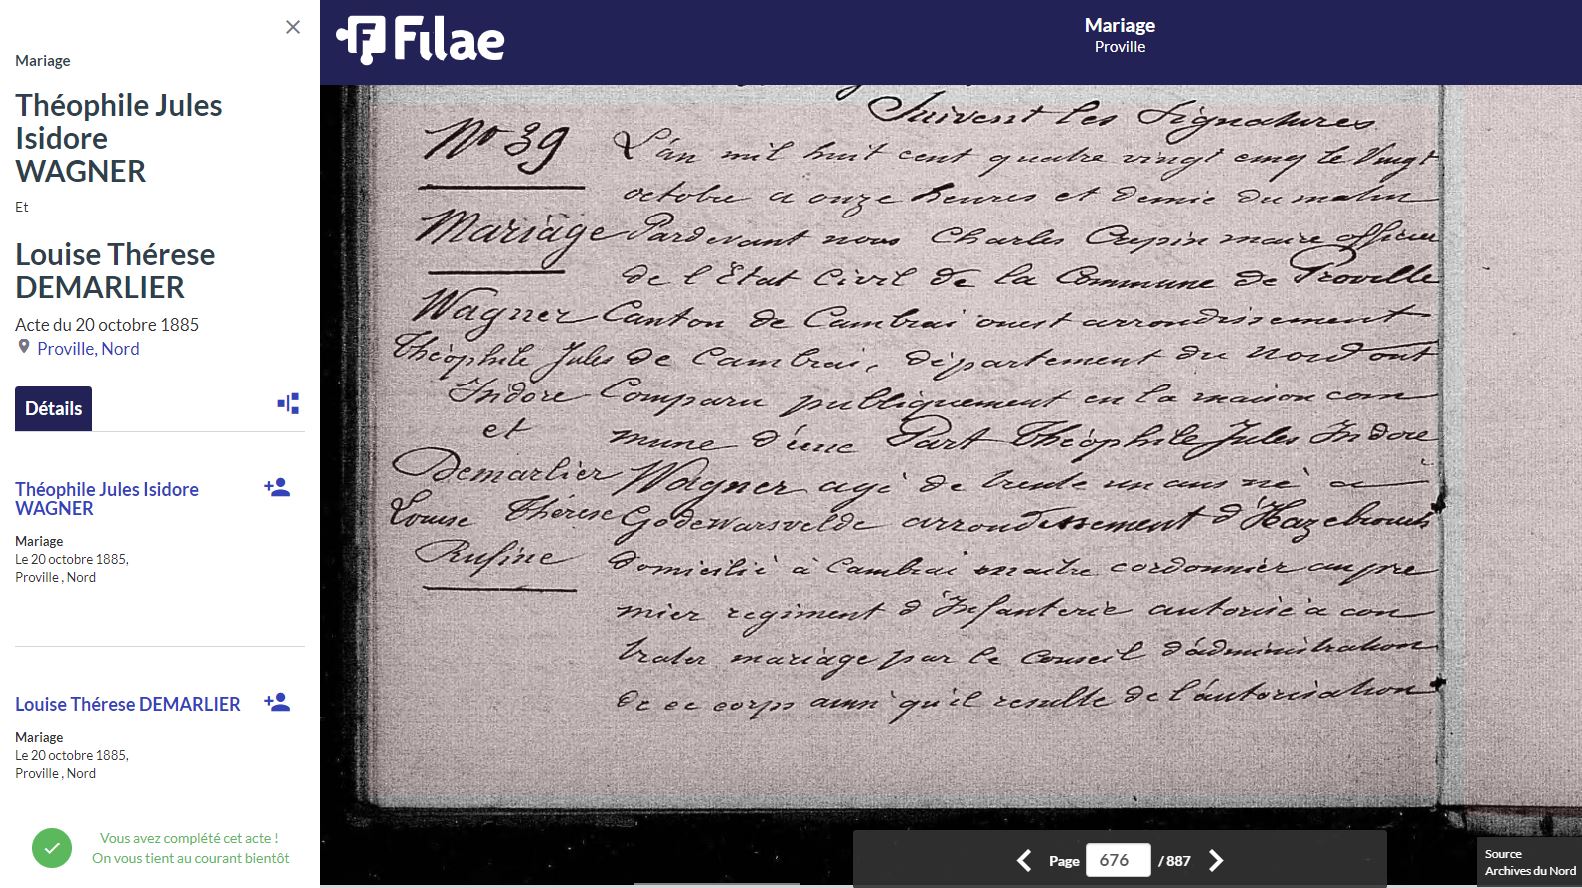 Mariage
Théophile Jules
Isidore
WAGNER
Et
Louise Thérese
DEMARLIER
Acte du 20 octobre 1885
Proville, Nord
Détails
Théophile Jules Isidore
WAGNER
Mariage
Le 20 octobre 1885,
Proville , Nord
Louise Thérese DEMARLIER
Mariage
Le 20 octobre 1885,
Proville , Nord
Vous avez complété cet acte !
On vous tient au courant bientôt
Filae
Mariage
Proville
Suivent les Signatures
N° 39
Mariage
Wagner
Théophile Jules
Isidore
et
Demarlier
Louise Thérèse
Rufine
L'an mil huit cent quatre vingt cinq le Vingt
octobre a onze heures et demie du matin
Pardevant nous Charles Crépin maire officier
de l'Etat Civil de la Commune de Proville
Canton de Cambrai ouest arrondissement
de Cambrai, département du Nord ont
Comparu publiquement en la maison com
mune d'une Part Théophile Jules Isidore
Wagner agé de trente un ans né à
Godewarsvelde arrondissement d'Hazebrouck
domicilié à Cambrai maître cordonnier au pre
mier regiment d'Infanterie autorisé a con
tracter mariage par le Conseil d'administration
de ce corps ainsi qu'il resulte de l'autorisation
Page 676 / 887
Source
Archives du Nord